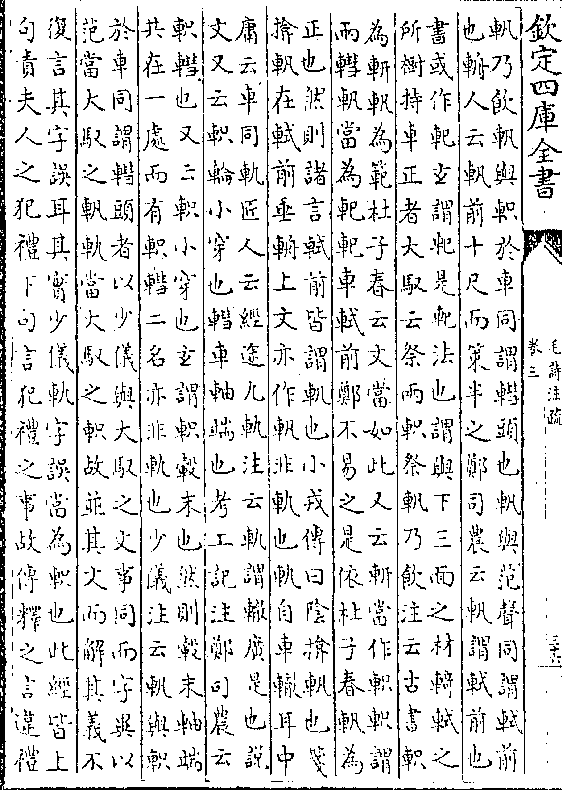 欽定四庫全書
毛詩注疏
卷三
三十六
軓乃飲軓與軹於車同謂轊頭也軓與范聲同謂軾前
也輈人云軓前十尺而策半之鄭司農云軓謂軾前也
書或作䡄玄謂䡄是軓法也謂輿下三面之材輢軾之
所樹持車正者大馭云祭兩軹祭軓乃飲注云古書軹
為䡉軓為範杜子春云文當如此又云䡉當作軹軹謂
兩轊軓當為䡄䡄車軾前鄭不易之是依杜子春軓為
正也然則諸言軾前皆謂軓也小戎傳曰陰揜軓也箋
揜軓在軾前垂輈上文亦作軓非軌也軌自車轍耳中
庸云車同軌匠人云經塗九軌注云軌謂轍廣是也說
文又云軹輪小穿也轊車軸端也考工記注鄭司農云
軹轊也又云軹小穿也玄謂軹轂末也然則轂末軸端
共在一處而有軹轊二名亦非軌也少儀注云軌與軹
於車同謂轊頭者以少儀與大馭之文事同而字異以
范當大馭之軓軌當大馭之軹故並其文而解其義不
復言其字誤耳其實少儀軌字誤當為軹也此經皆上
句責夫人之犯禮下句言犯禮之事故傳釋之言違禮